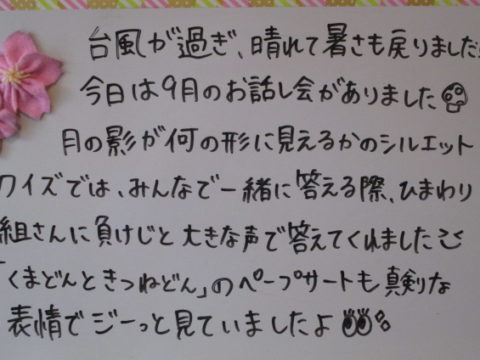 台風が過ぎ、晴れて暑さも戻りました!
今日は9月のお話し会がありました
月の影が何の形に見えるかのシルエット
クイズでは、みんなで一緒に答える際、ひまわり
組さんに負けじと大きな声で答えてくれました
「くまどんときつねどん」のペープサートも真剣な
表情でジーっと見ていましたよ